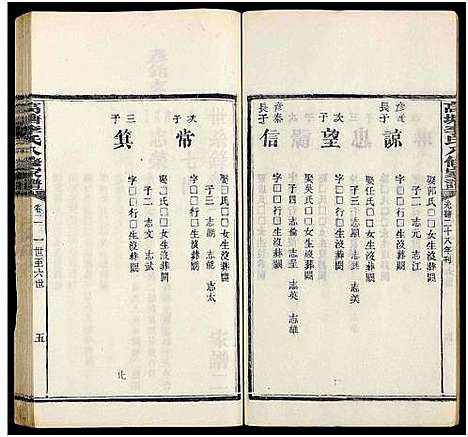 高塘李氏八修家譜
光緒二十八年刊
次子 諒
字□□行□生沒葬闕
娶郭氏□□女生沒葬闕
子二 志元 志江
彥泰長子 望
字□□行□生沒葬闕
娶任氏□□女生沒葬闕
子三 志美
長子 信
字□□行□生沒葬闕
娶□氏□□女生沒葬闕
子四 志倫 志星 志英 志雄
次子 常
字□□行□生沒葬闕
娶□氏□□女生沒葬闕
子三 志朝 志龍 志太
三子 箕
字□□行□生沒葬闕
娶□氏□□女生沒葬闕
子二 志文 志武
止
高塘李氏八修家譜
卷二 一世至六世
五